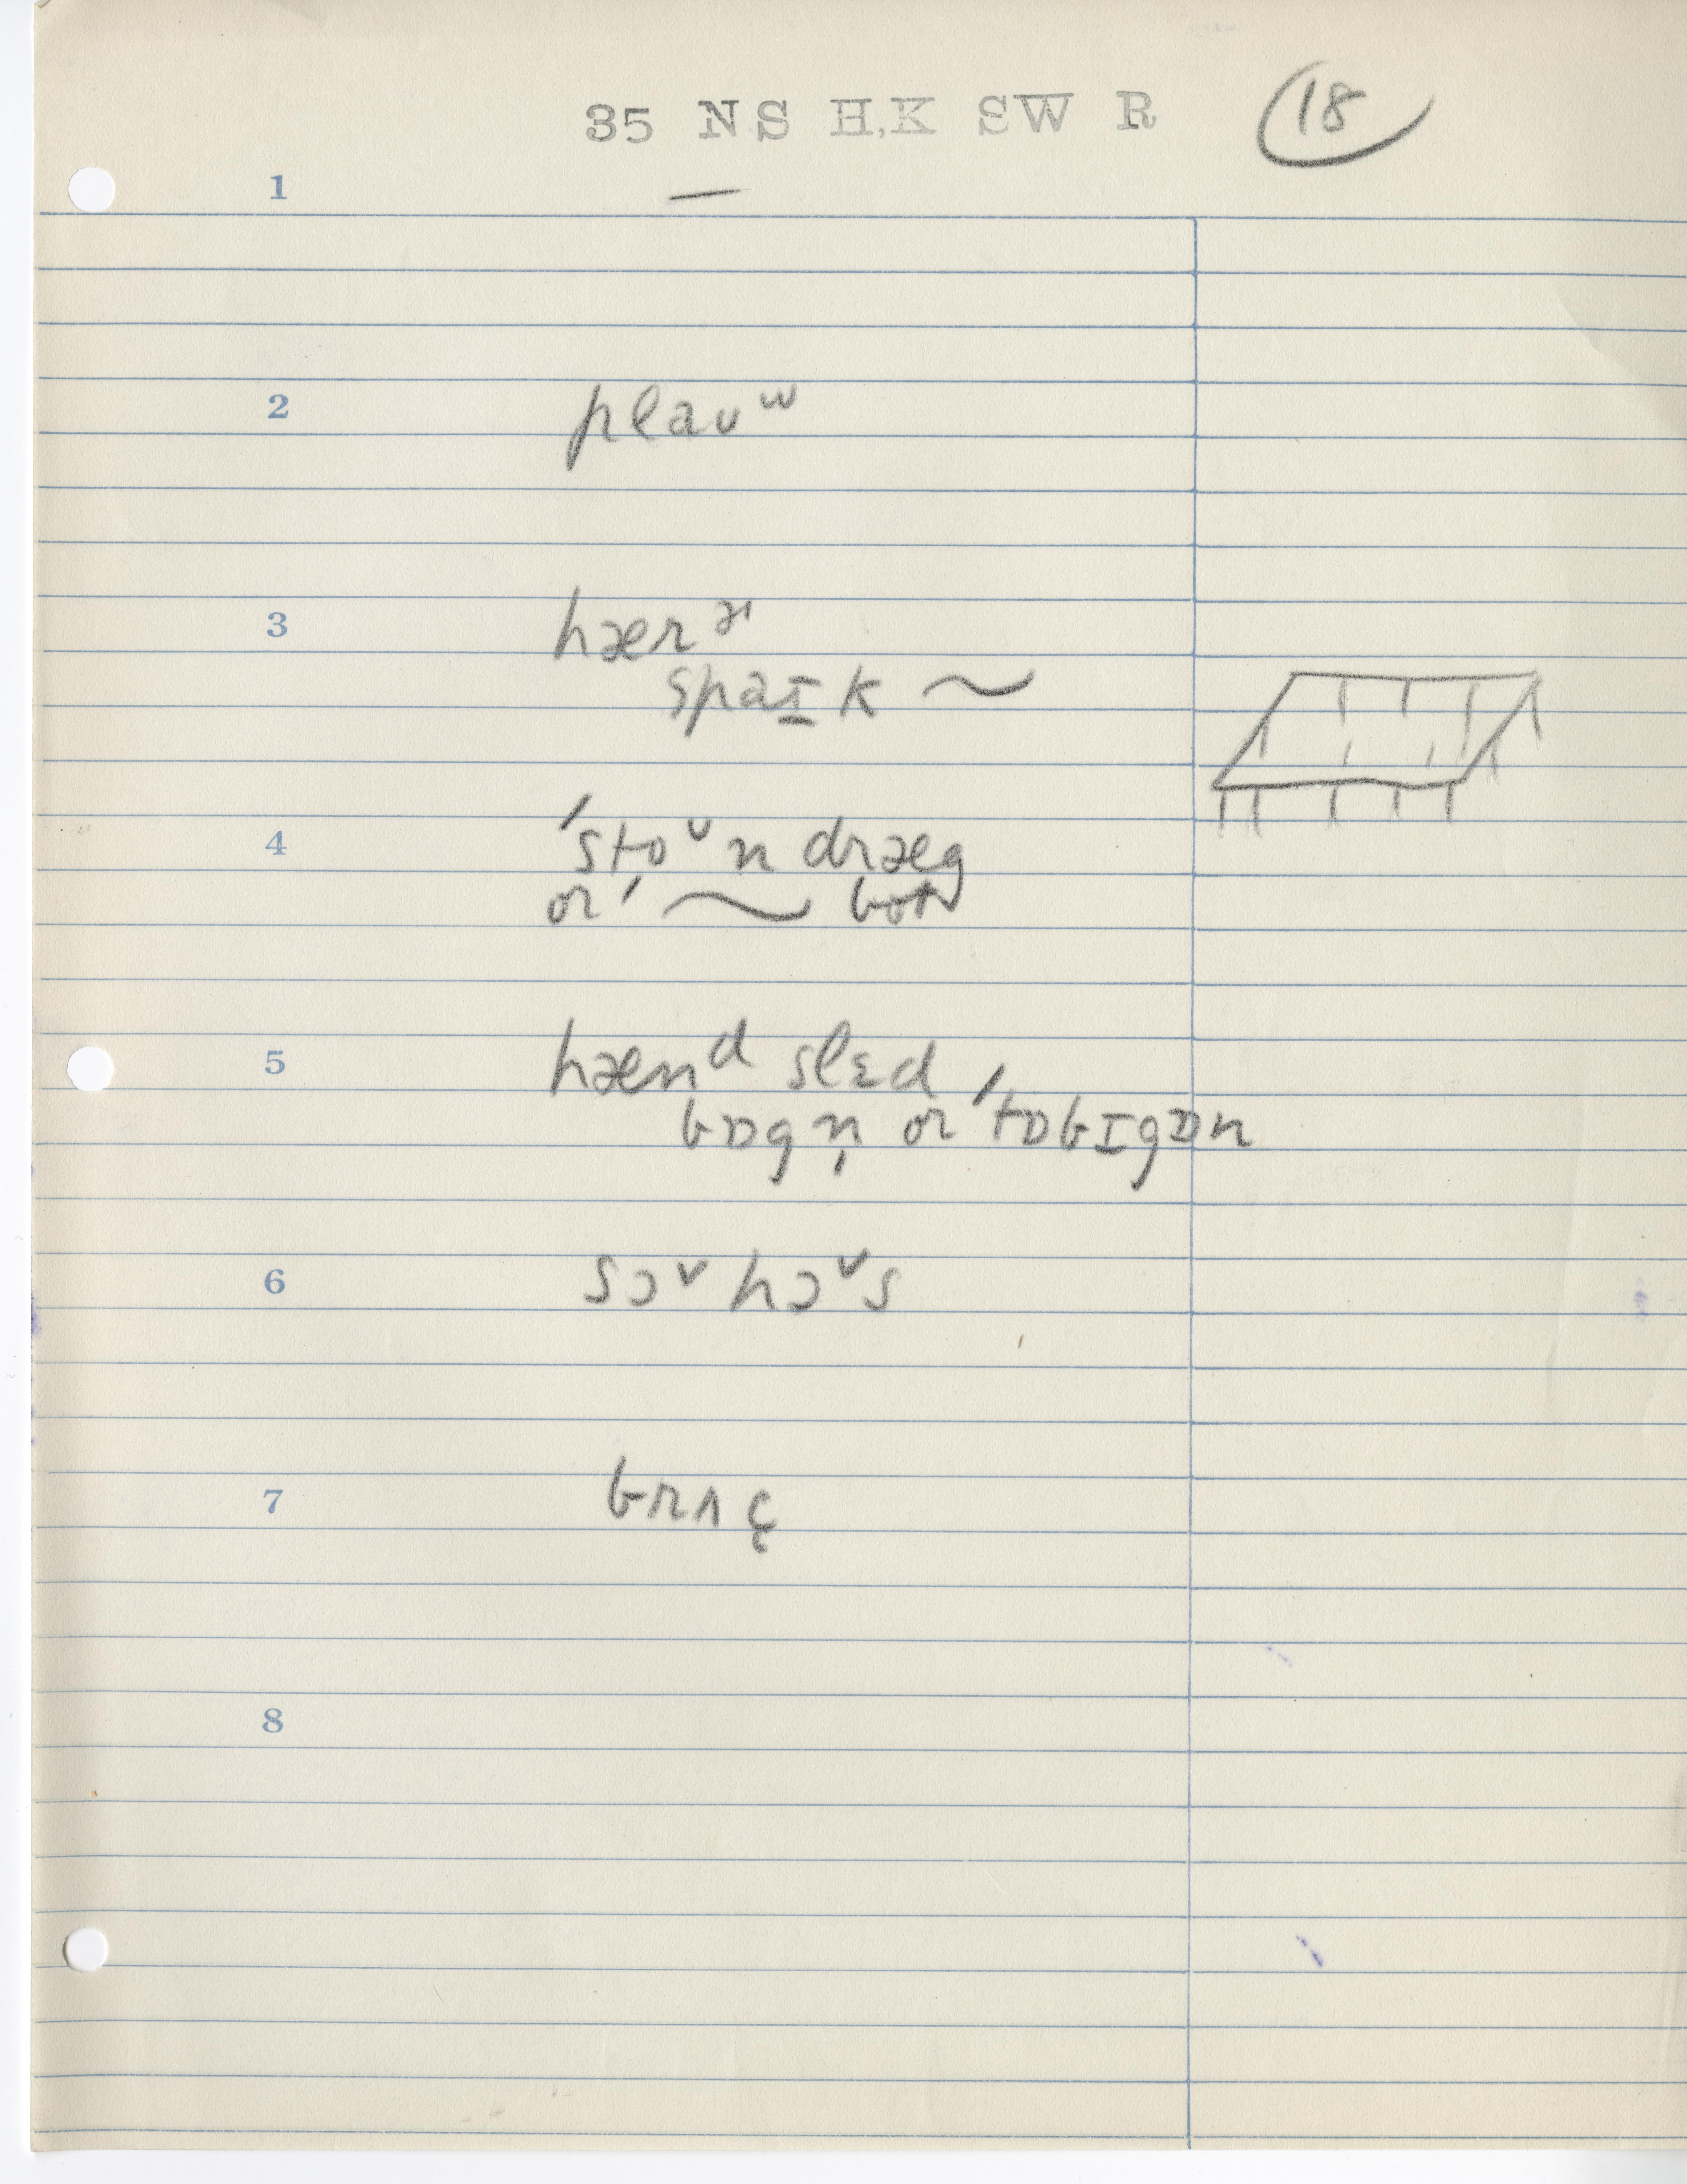 35 NS H,K SW R 18
1 —
2 plaʊʷ
3 hærə˞
spaɪk ~
4 ˈstɒᶷn dræg
or ˈ~
5 hænᵈ slɛd
bɒgn̩ or ˈtɒbɪgɒn
6 sɔᵛ hɔᵛs
7
8